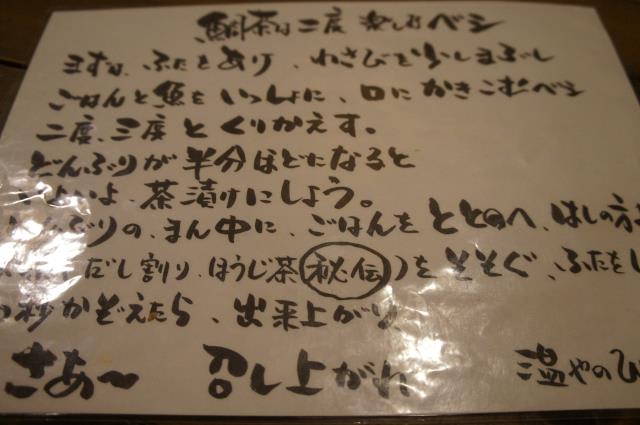 鯛茶は二度楽しむベシ
まずは、ふたをあけ、わさびを少しまぶし
ごはんと魚をいっしょに、口にかきこむベシ
二度、三度とくりかえす。
どんぶりが半分ほどになると
いよいよ、茶漬けにしよう。
んぶりの、まん中に、ごはんをととのへ、はしの方
だし割り、ほうじ茶(秘伝)をそそぐ、ふたをし
秒かぞえたら、出来上がり
さあ〜 召し上がれ 温やのひ